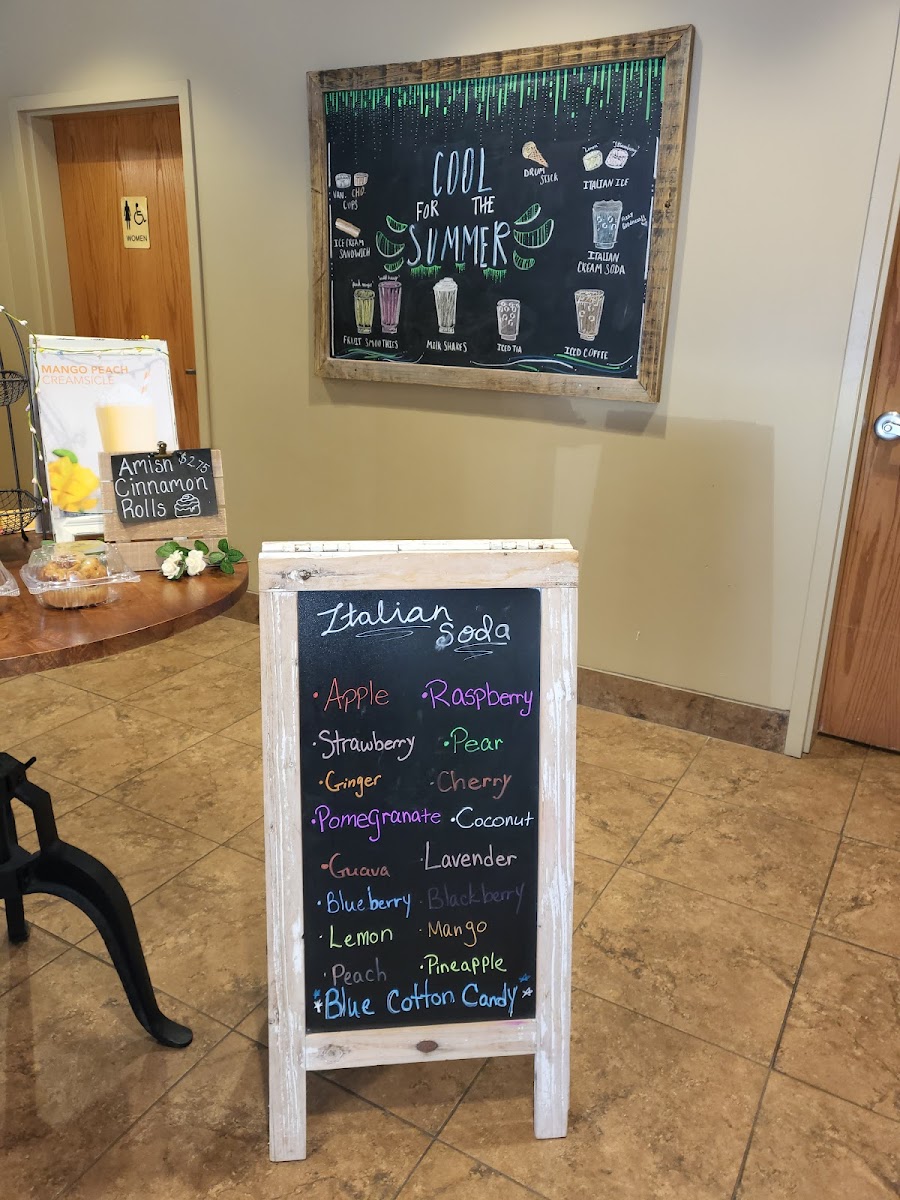 COOL
FOR THE
SUMMER
VAN. CHO.
CUPS
ICE CREAM
SANDWICH
DRUM
STICK
"Lemon" "Strawberry"
ITALIAN ICE
ITALIAN
CREAM SODA
FRUIT SMOOTHIES
MILK SHAKES
ICED TEA
ICED COFFEE
WOMEN
MANGO PEACH
CREAMSICLE
Amish $2.75
Cinnamon
Rolls
Italian
Soda
• Apple • Raspberry
• Strawberry • Pear
• Ginger • Cherry
• Pomegranate • Coconut
• Guava • Lavender
• Blueberry • Blackberry
• Lemon • Mango
• Peach • Pineapple
Blue Cotton Candy